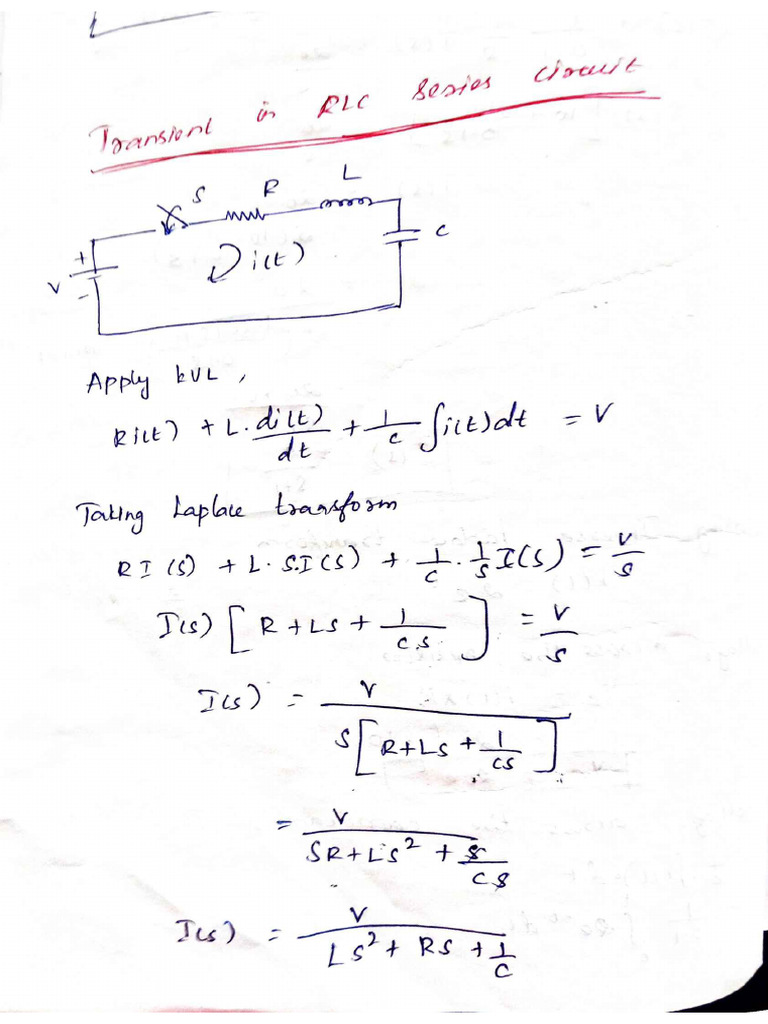 Transient in RLC Series Circuit
S R L
+ V - i(t) C
Apply KVL,
Ri(t) + L. di(t)/dt + 1/C ∫i(t)dt = V
Taking Laplace transform
RI(S) + L. S.I(S) + 1/C . 1/S I(S) = V/S
I(s) [R + LS + 1/C.S] = V/S
I(s) = V / S[R+LS + 1/CS]
= V / SR+LS² + S/CS
I(s) = V / LS² + RS + 1/C